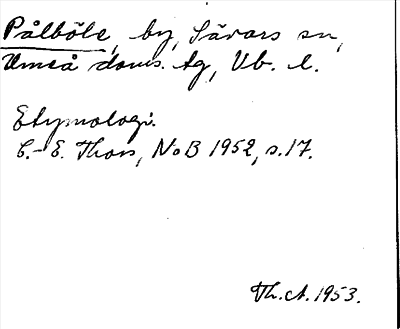 Pålböle, by, Sävars sn,
Umeå doms. tg, Vb. l.
Etymologi.
C.-E. Thors, NoB 1952, s.17.
Th.A. 1953.